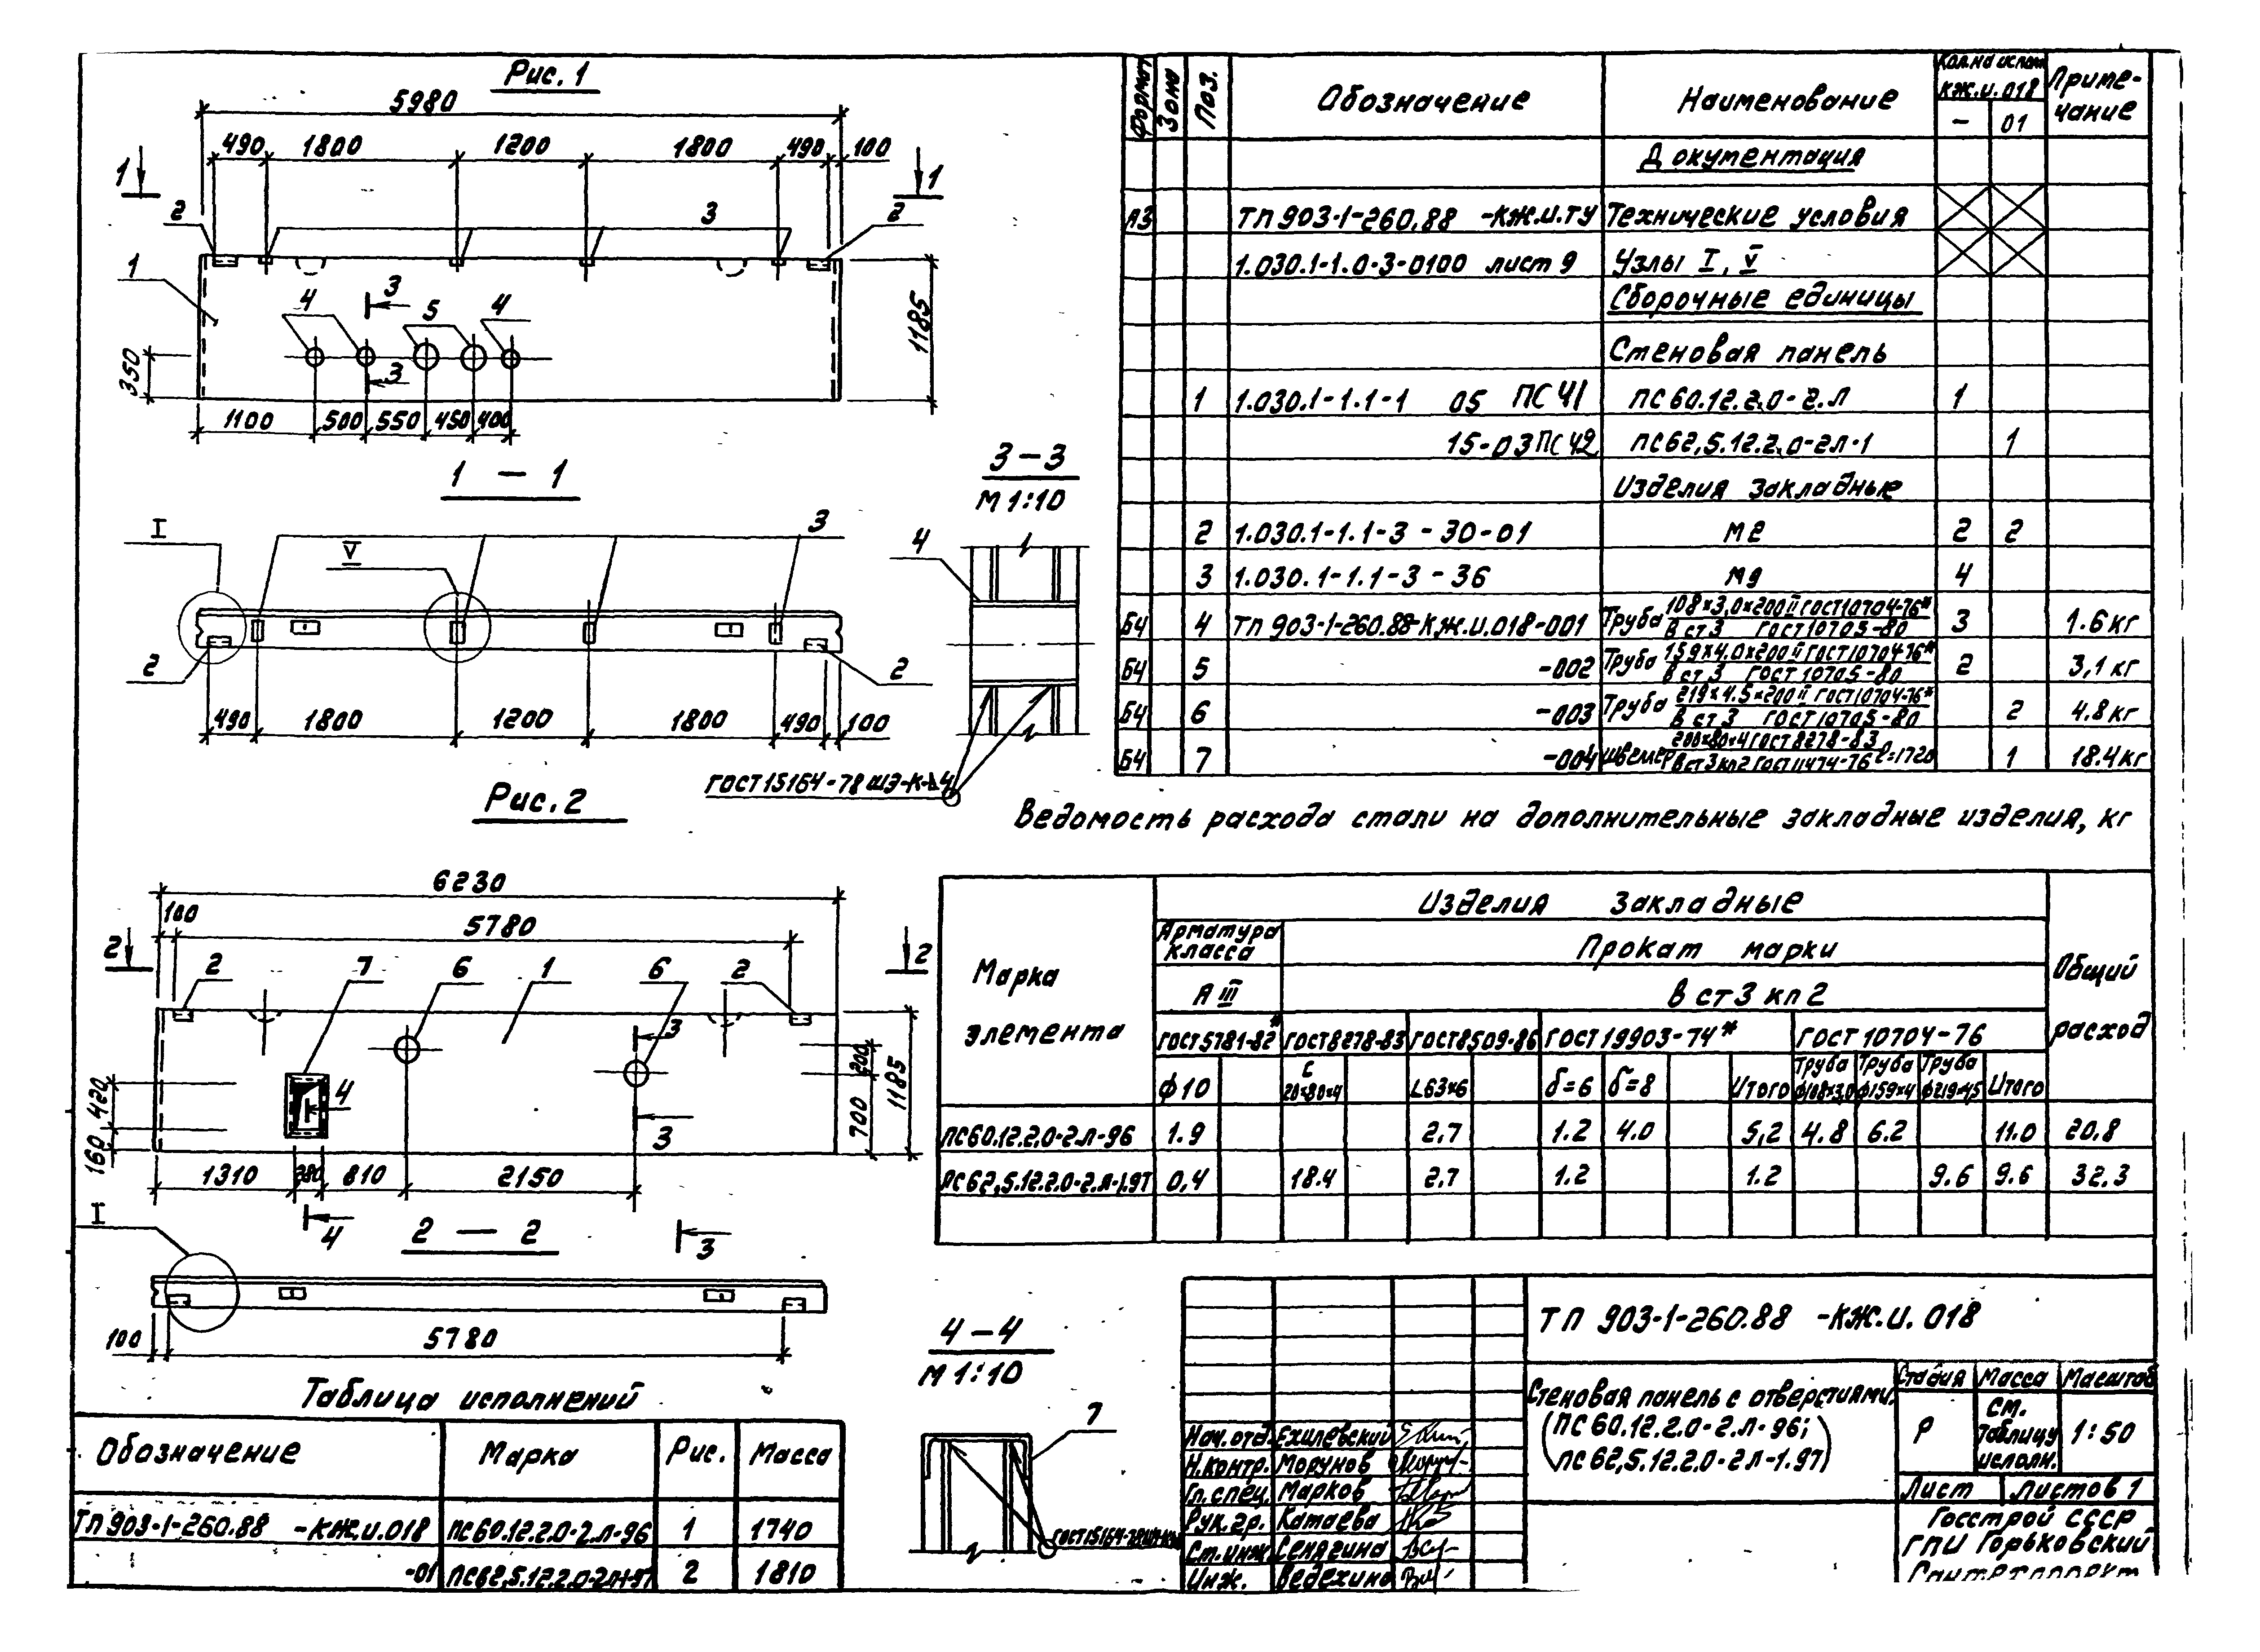 Рис. 1
5980
490 1800 1200 1800 490 100
1 1
2 3 2
1
3
4 5 4
3
1185
350
1100 500 550 450 400
1 — 1
I V 3
2 2
490 1800 1200 1800 490 100
3 – 3
М 1:10
4
ГОСТ 15164-78
Рис. 2
6230
100 5780
2 2
2 7 6 1 6 2
3
4
3
200
700
1185
420
160
1310 280 810 2150
4 3
2 — 2
I
100 5780
4 – 4
М 1:10
7
Таблица исполнений
Обозначение Марка Рис. Масса
ТП 903-1-260.88 -КЖ.И.018 ПС60.12.2.0-2.Л-96 1 1740
-01 2 1810
Формат Зона Поз. Обозначение Наименование Кол. на испол. КЖ.И.018 Приме-
чание
— 01
Документация
А3 ТП 903-1-260.88 -КЖ.И.ТУ Технические условия
1.030.1-1.0-3-0100 лист 9 Узлы I, V
Сборочные единицы
Стеновая панель
1 1.030.1-1.1-1 05 ПС41 ПС60.12.2.0-2.Л 1
15-03 ПС42 ПС62,5.12.2.0-2Л-1 1
Изделия закладные
2 1.030.1-1.1-3 - 30-01 М2 2 2
3 1.030.1-1.1-3 - 36 4
Б4 4 ТП 903-1-260.88-КЖ.И.018-001 Труба 108×3,0×200 II ГОСТ10704-76* 3 1.6 кг
В ст 3 ГОСТ 10705-80
Б4 5 -002 Труба 159×4.0×200 II ГОСТ10704-76* 2 3,1 кг
В ст 3 ГОСТ 10705-80
Б4 6 -003 Труба 219×4.5×200 II ГОСТ10704-76* 2 4.8 кг
В ст 3 ГОСТ 10705-80
Б4 7 -004 Швеллер 200×80×4 ГОСТ 8278-83 ℓ=1720 1 18.4 кг
В ст3кп2 ГОСТ 11474-76
Ведомость расхода стали на дополнительные закладные изделия, кг
Марка
элемента
Изделия закладные
Общий
расход
Арматура
класса
Прокат марки
А III В ст 3 кп 2
ГОСТ 5781-82* ГОСТ 8278-83 ГОСТ 8509-86 ГОСТ 19903-74* ГОСТ 10704-76
Ф10 L63×6 δ=6 δ=8 Итого Труба Ф108×3,0 Труба Ф159×4 Труба Ф219×4,5 Итого
ПС60.12.2.0-2.Л-96 1.9 2.7 1.2 4.0 5,2 4.8 6.2 11.0 20.8
ПС62,5.12.2.0-2.Л-1.97 0,4 18.4 2.7 1.2 1.2 9.6 9.6 32.3
ТП 903-1-260.88 -КЖ.И.018
Стеновая панель с отверстиями.
(ПС60.12.2.0-2.Л-96;
ПС62,5.12.2.0-2Л-1.97)
Стадия Масса Масштаб
Р См. таблицу исполн. 1:50
Лист Листов 1
Нач. отд. Ехилевский
Н.контр. Морунов
Гл. спец. Марков
Рук. гр. Катаева
Ст. инж. Сенягина
Инж. Ведехина
Госстрой СССР
ГПИ Горьковский
Сантехпроект